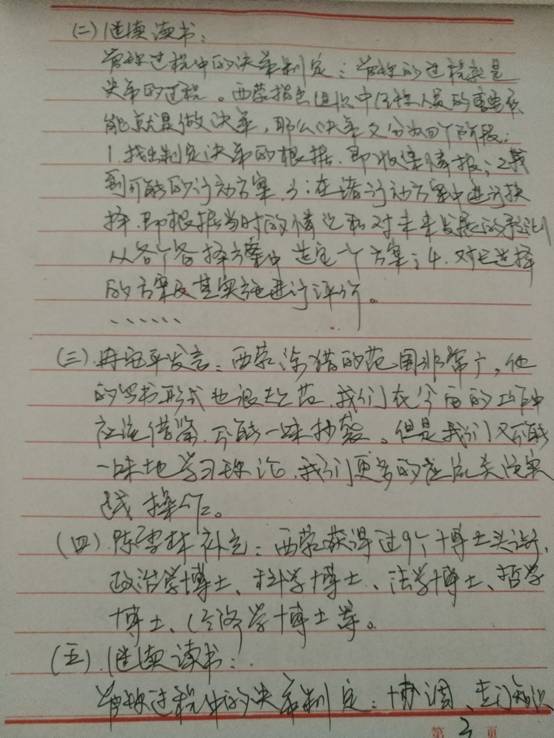 (二)继续读书:
管理过程中的决策制定:管理的过程就是
决策的过程。西蒙指出组织中经理人员的重要职
能就是做决策,那么决策又分为四个阶段:
1.找出制定决策的根据,即收集情报;2.找
到可能的行动方案;3:在诸行动方案中进行抉
择,即根据当时的情况和对未来发展的预测
从各个备择方案中选定一个方案;4.对已选择
的方案及其实施进行评价。
……
(三) 发言:西蒙涉猎的范围非常广,他
的写书形式也很 范,我们在今后的工作中
应该借鉴,不能一味抄袭。但是我们又不能
一味地学习理论,我们更多的应该关注实
践操作。
(四) 补充:西蒙获得过9个博士头衔,
政治学博士、科学博士、法学博士、哲学
博士、经济学博士等。
(五)继续读书:
管理过程中的决策制定:协调、专门知识
第 3 页